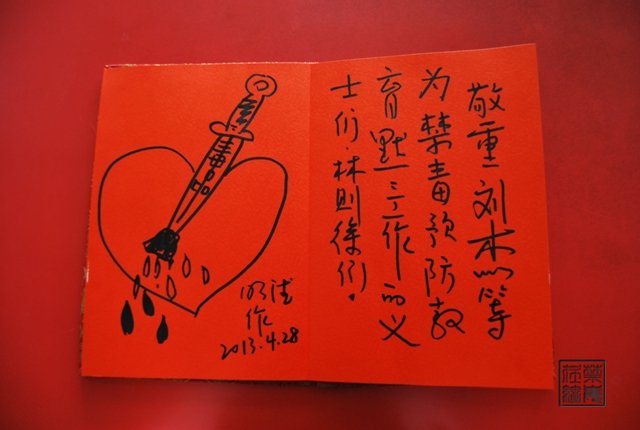 敬重刘木等
为禁毒预防教
育默〻工作的义
士们.林则徐们。
毒品
作
2013.4.28